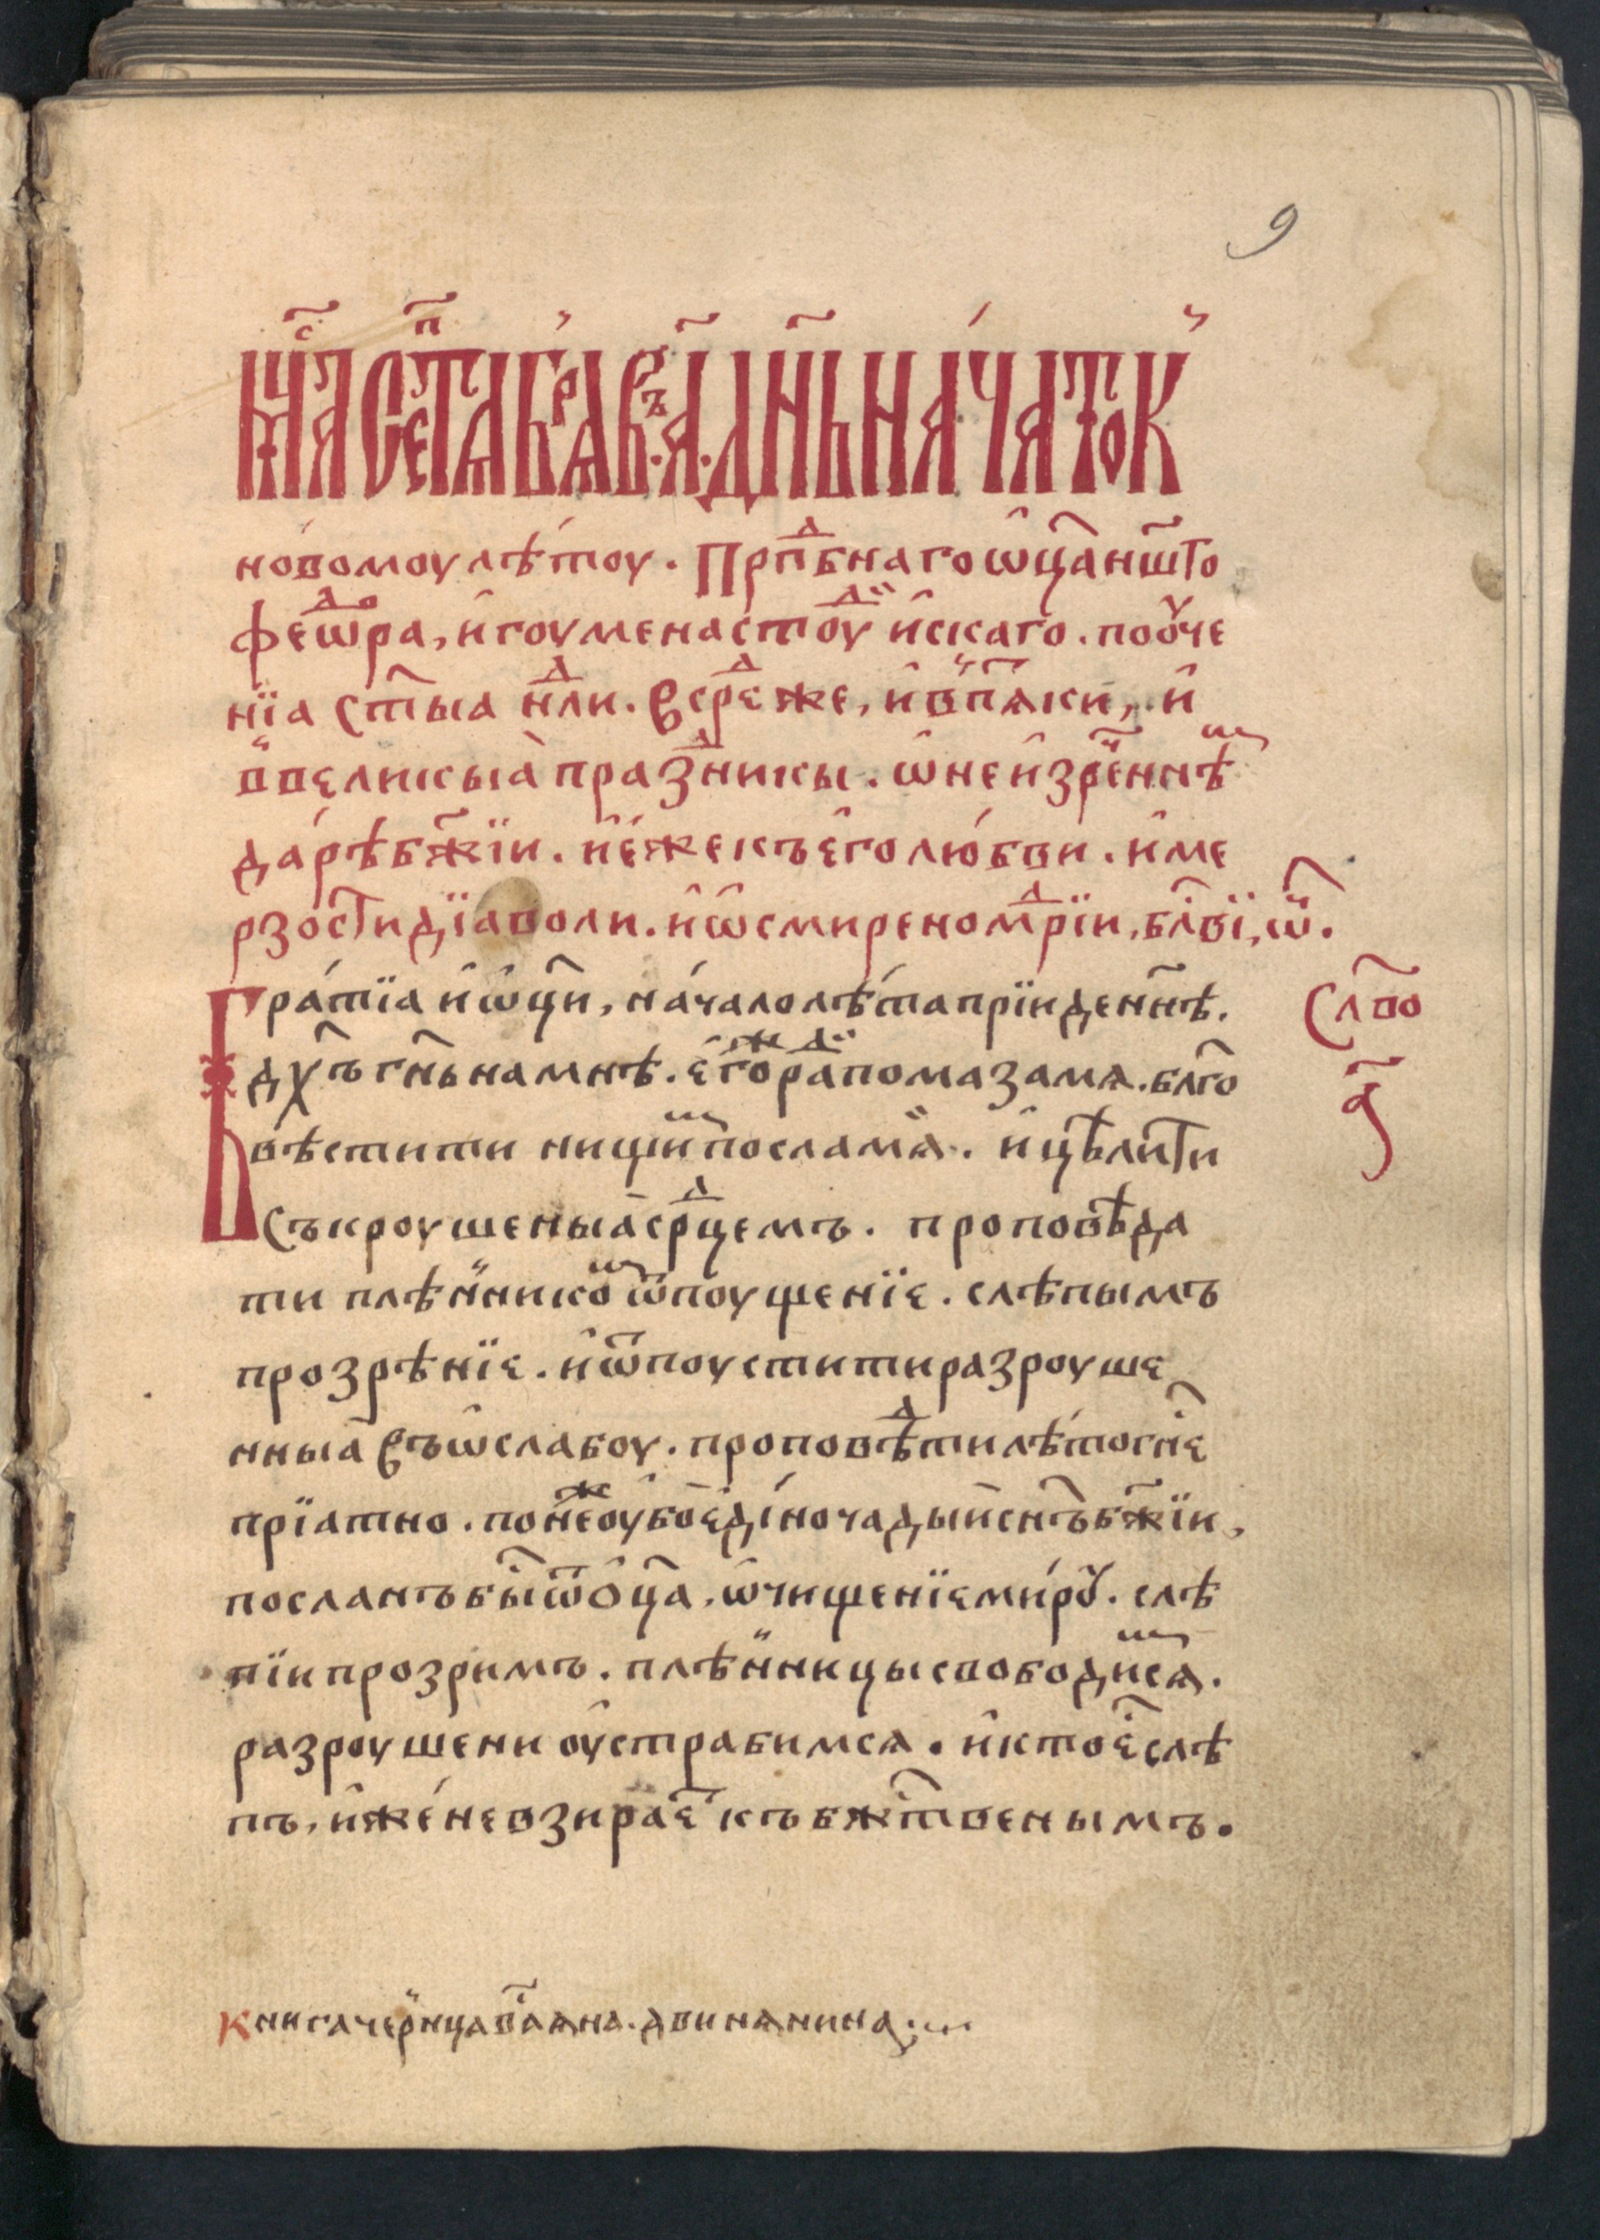 9
мц҃а сеп҃тѧбрѧ въ·а҃· дн҃ь нача́ток
но́вомоу лѣ́тоу. Прпⷣбнаго ѡ҆ц҃а нш҃го
фео҆ⷣⷪра, и҆гоумена стоуⷣи҆искаго. поѹче
нїа ст҃ыа нⷣли. Всреⷣ же, и҆ в пѧ҃ки, и҆
в великыа̀ празⷣникы. ѡ҆ неи҆зре́ннѣⷨ
да́рѣ бж҃їи. и҆ є҆́же къ є҆го лю́бви. и҆ ме
рзости дїаволи. и҆ ѡ҆ смиреномⷣрїи, бл҃ви, ѿ҃.
Бра́тїа и҆ ѡ҆ц҃и, нача́ло лѣ́та прїиде нн҃ѣ.
дх҃ъ гн҃ь на мнѣ. є҆гоⷤ раⷣ помаза мѧ. бл҃го
вѣстити нищиⷨ посла мѧ̀. и҆цѣлити
съкроушеныа̀ срⷣцемъ. проповѣда
ти плѣнникоⷨ ѿпоущенїе. слѣпымъ
прозрѣнїе. и҆ ѿпоустити разроуше
нныа̀ въ ѡ҆слабоу. проповѣⷣти лѣ́то гн҃е
прїатно. понеⷤ оубо є҆ди́ночадыи сн҃ъ бж҃їи,
посланъ бы҃ ѿ ѻ҆ц҃а, ѡ҆чищенїе ми́рꙋ. слѣ
пїи прозримъ. плѣнницы свободиⷨсѧ.
разроушени оу҆страбимсѧ. и҆ кто є҆҃ слѣ
пъ, и҆́же не взирае҃ къ бж҃твенымъ.
Сл҃во
а҃
Книга черньца ва҃сїѧна. двинѧнина:~